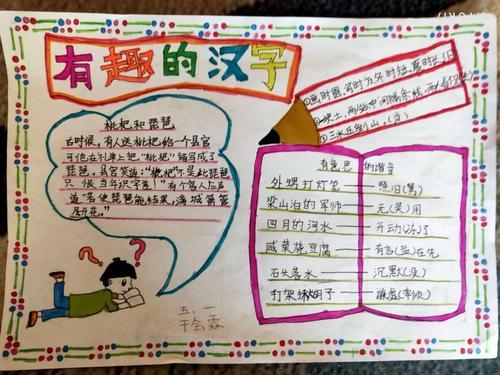 有趣的汉字
①画时圆,写时方,冬时短,夏时长(日)
②一块土,两
③三水压倒山。(当)
枇杷和琵琶
古时候,有人送枇杷给一个县官
可他在礼单上把"枇杷"错写成了
琵琶。县官笑道:"枇杷不是此琵琶
只恨当年识字差!"有个客人应声
道"若使琵琶能结果,满城箫管
尽开花。"
有意思的谐音
外甥打灯笼——照旧(舅)
梁山泊的军师——无(吴)用
四月的河水——开动(冻)了
咸菜烧豆腐——有言(盐)在先
石头落水——沉默(没)
打架揪胡子——谦虚(牵须)
五、一
于会霖